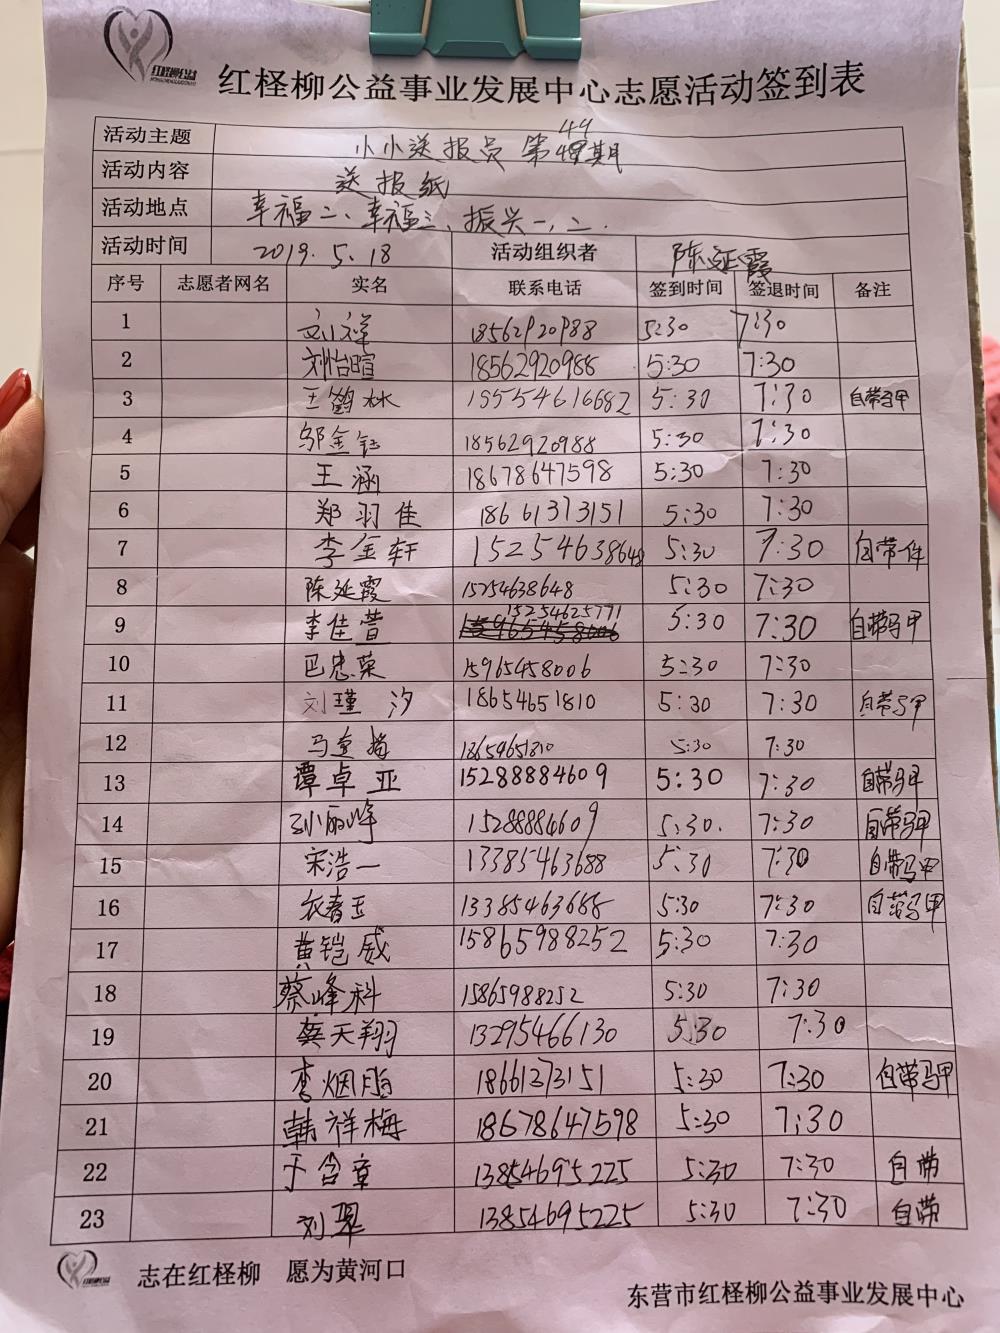 红柽柳公益
红柽柳公益事业发展中心志愿活动签到表
活动主题 小小送报员 第44期
活动内容 送报纸
活动地点 幸福二、幸福三、振兴一、二.
活动时间 2019.5.18 活动组织者 陈延霞
序号 志愿者网名 实名 联系电话 签到时间 签退时间 备注
1 刘祥 18562920988 5:30 7:30
2 刘怡暄 18562920988 5:30 7:30
3 王鹤林 15554616682 5:30 7:30 自带马甲
4 邬金钰 18562920988 5:30 7:30
5 王涵 18678647598 5:30 7:30
6 郑羽佳 18661373151 5:30 7:30
7 李金轩 15254638648 5:30 7:30 自带一件
8 陈延霞 15254638648 5:30 7:30
9 李佳萱 15254625771 5:30 7:30 自带马甲
10 巴忠荣 15965458006 5:30 7:30
11 刘瑾汐 18654651810 5:30 7:30 自带马甲
12 马 18659651810 5:30 7:30
13 谭卓亚 15288884609 5:30 7:30 自带马甲
14 孙丽峰 15288884609 5:30. 7:30 自带马甲
15 宋浩一 13385463688 5:30 7:30 自带马甲
16 衣春玉 13385463688 5:30 7:30 自带马甲
17 黄铠威 15865988252 5:30 7:30
18 蔡峰科 15865988252 5:30 7:30
19 龚天翔 13295466130 5:30 7:30
20 李烟脂 18661373151 5:30 7:30 自带马甲
21 韩祥梅 18678647598 5:30 7:30
22 于含章 13854695225 5:30 7:30 自带
23 刘翠 13854695225 5:30 7:30 自带
志在红柽柳 愿为黄河口
东营市红柽柳公益事业发展中心